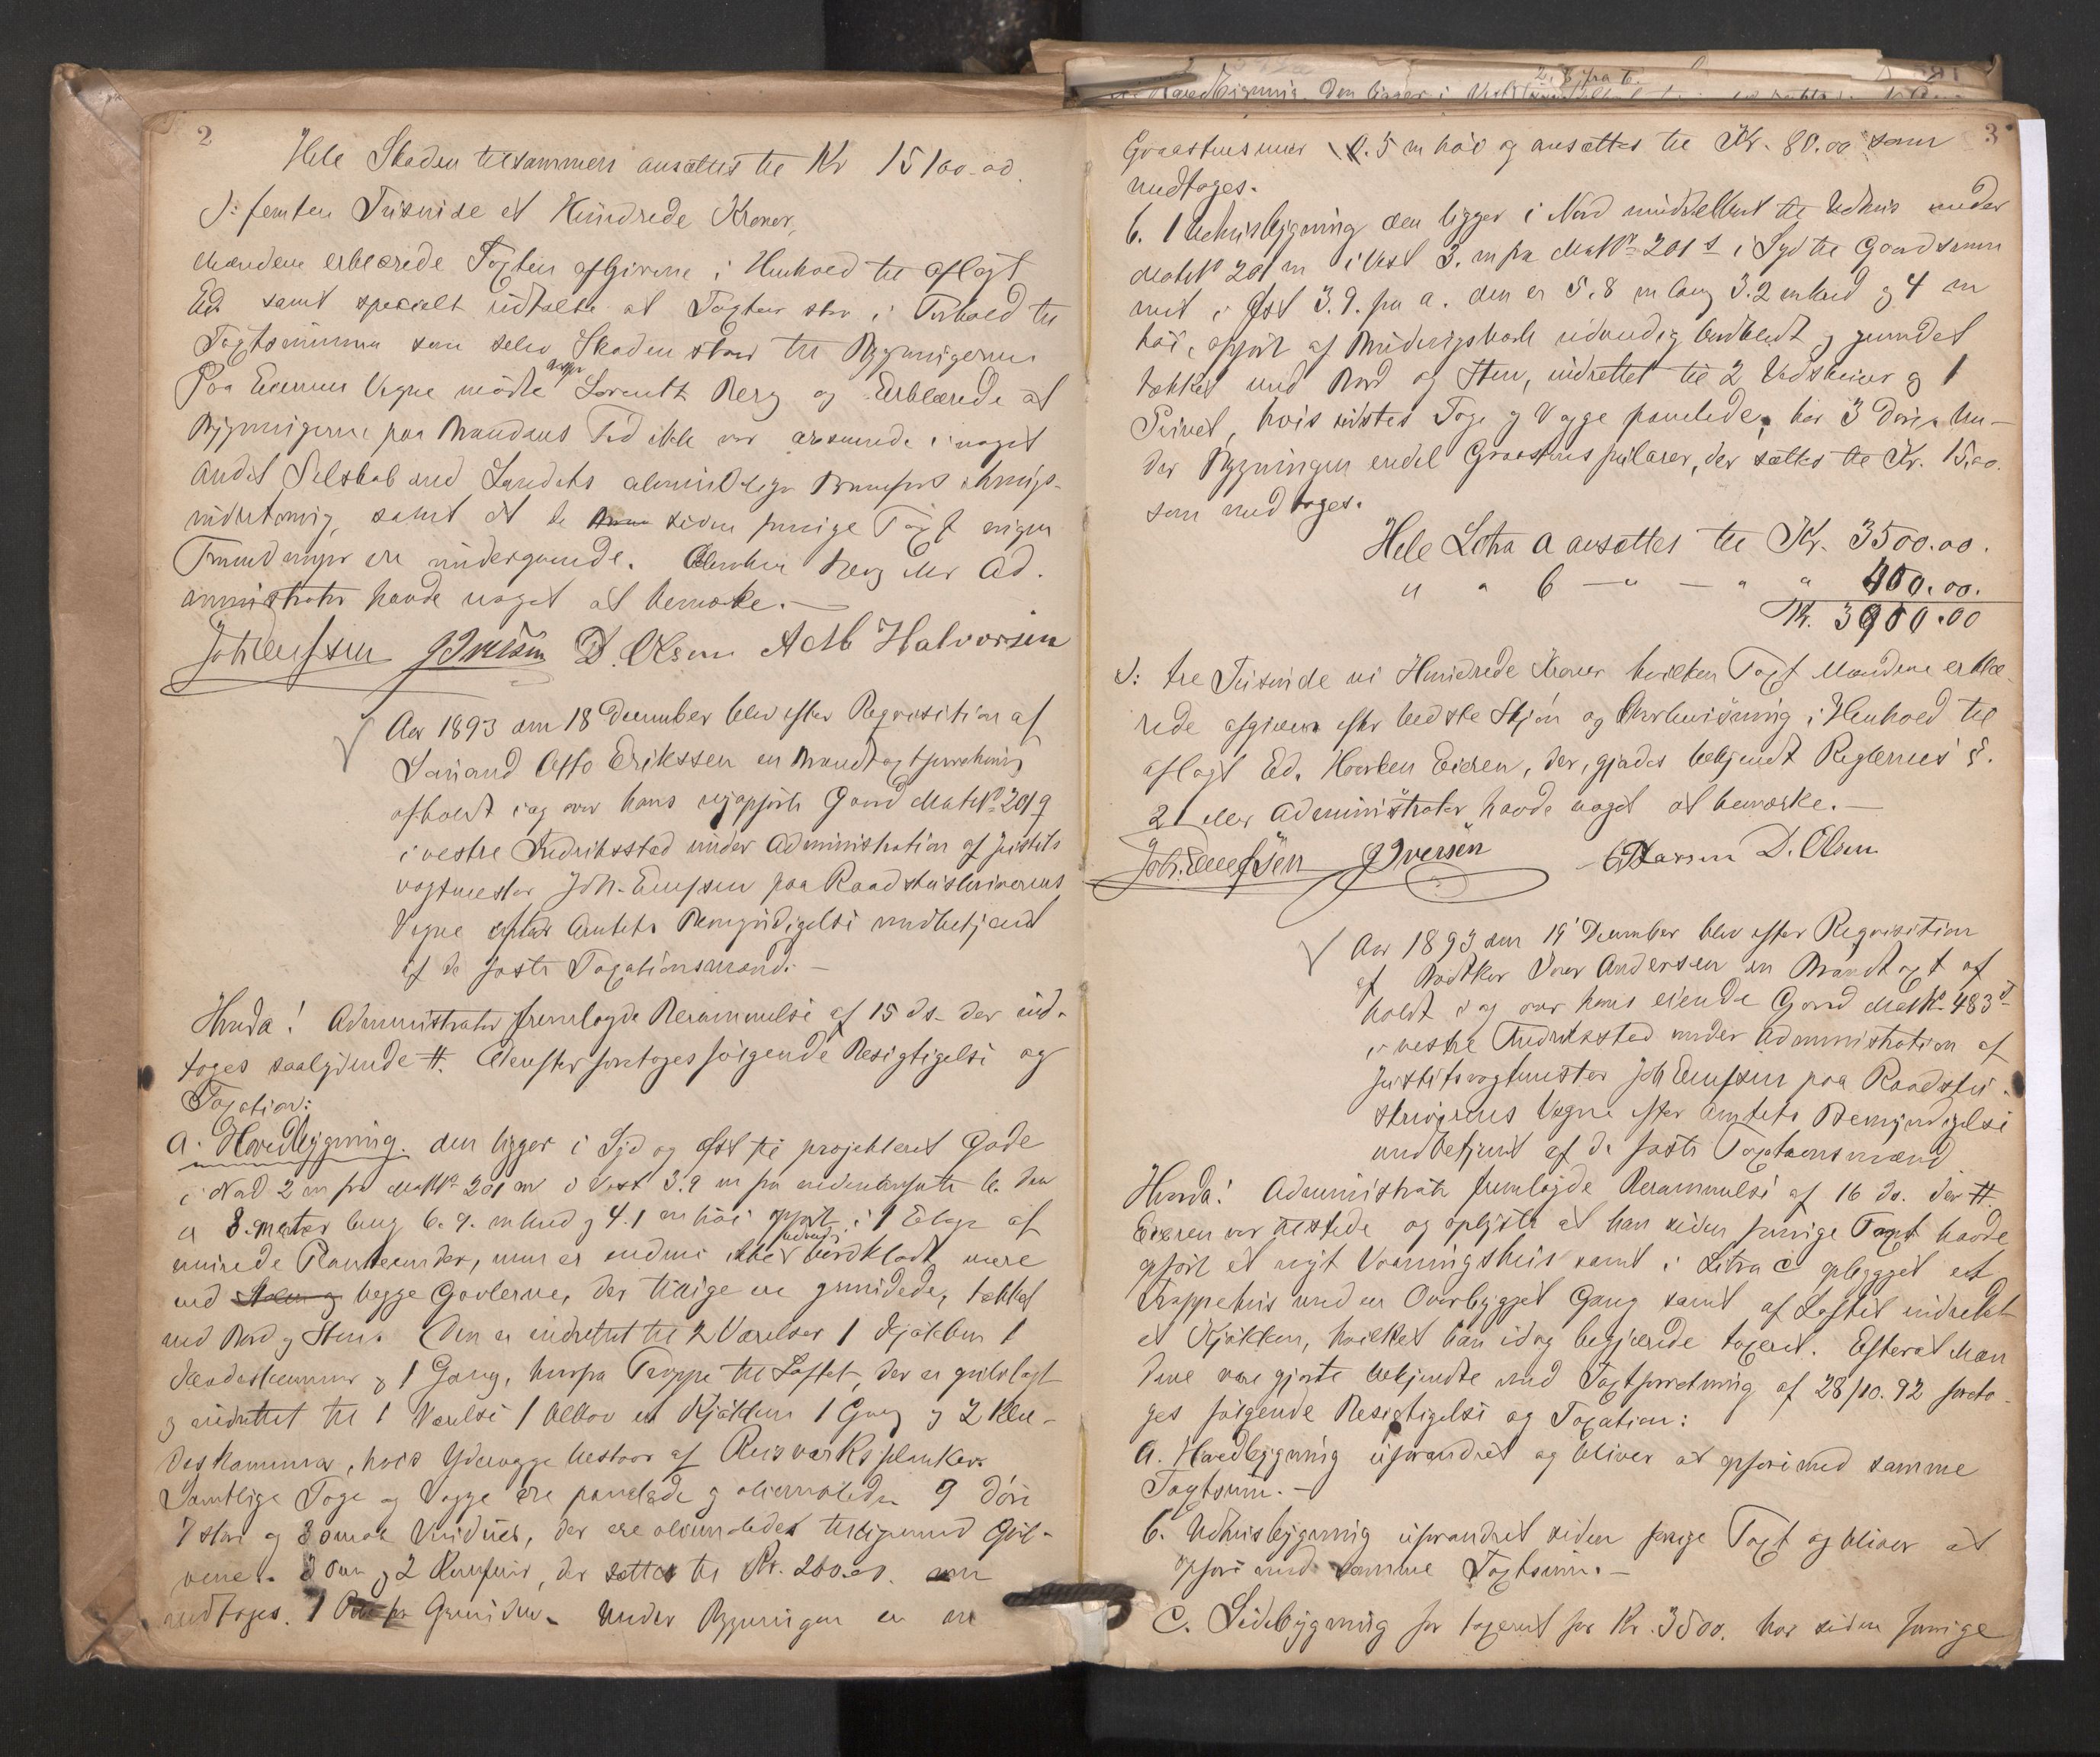 2
Hele Skaden tilsammen ansættes til Kr 15100.00.
ɔ: femten Tusinde et Hundrede Kroner,
Mændene erklærede Taxten afgiven i Henhold til aflagt
Ed samt specielt udtalte at Taxten staar i Forhold til
Taxtsummen som selve Skaden staar til Bygningerne
Paa Eierens Vegne mødte Lorentz Berg og Erklærede at
Bygningerne paa Brandens Tid ikke var assurerede i noget
andet Selskab end Landets almindelige Brandforsikrings-
indretning, samt at de siden forrige Taxt ingen
Forandringer ere undergaaede. Hverken Berg eller Ad-
ministrator havde noget at bemærke.—
Joh Enefsen JIversen D. Olsen A M Halvorsen
Aar 1893 den 18 December blev efter Reqvisition af
Sømand Otto Erikssen en Brandtaxtforretning
afholdt idag over hans nyopførte Gaard MatNo 201q
i vestre Fredriksstad under Administration af Justits
vagtmester Joh. Enefsen paa Raadstueskriverens
Vegne efter Amtets Bemyndigelse medbetjent
af de faste Taxationsmænd.—
Hvorda! Administrator fremlagde Berammelse af 15 ds. der ind-
tages saalydende #. Derefter foretoges følgende Besigtigelse og
Taxation:
a. Hovedbygning. den ligger i Syd og Øst til projekteret Gade
i Nord 2 m fra MatNo 201 m i Vest 3.9 m fra nedenanførte b. den
er 8. meter lang 6.9. m bred og 4.1 m høi opført i 1 Etage af
med begge Gavlerne, der tillige ere grundede, tækket
med Bord og Sten. Den er indrettet til 2 Værelser 1 Kjøkken 1
Klædeskammer og 1 Gang, hvorfra Trappe til Loftet, der er gulvlagt
og indrettet til 1 Værelse 1 Kjøkken 1 Gang og 2 Klæ-
deskammer, hvis Ydervægge bestaar af Reisværksplanker.
Samtlige Tage og Vægge ere panelede og oliemalede. 9 Døre
7 store og 3 smaa Vinduer, der ere oliemalede tilligemed Gul-
vene. og 2 Komfurer, der sættes til Kr. 200.00. som
nedtages. 1 Grunden. Under Bygningen er en
3
Graastensmur 0.5 m høi og ansættes til Kr. 80.00 som
nedtages.
b. 1 Udhusbygning den ligger i Nord umiddelbart til Udhus under
MatNo 201 m i Vest 3. m fra MatNo 201 s i Syd til Gaardsrum
met i Øst 3.9. fra a. den er 5.8 m lang 3.2 m bred og 4 m
høi, opført af Bindingsværk udvendig bordklædt og grundet
tækket med Bord og Sten, indrettet til 2 Vedskiur og 1
Privet, hvis sidstes Tage og Vægge panelede, har 3 Døre. Un-
der Bygningen endel Graastens pilarer, der sættes til Kr. 15.00.
som nedtages.
Hele Litra a ansættes til Kr. 3500.00.
" " b —"— " " 400.00.
Kr. 3900.00
ɔ: tre Tusinde ni Hundrede Kroner hvilken Taxt Mændene erklæ-
rede afgiven efter bedste Skjøn og Overbevisning i Henhold til
aflagt Ed. Hverken Eieren, der, gjordes bekjendt Reglernes §.
21 eller Administrator havde noget at bemærke.—
Joh. Enefsen JIversen D. Olsen
Aar 1893 den 19 December blev efter Reqvisition
af Bødtker Iver Andersen en Brandtaxt af
holdt idag over hans eiende Gaard MatNo 483
i vestre Fredriksstad under Administration af
Justitsvagtmester Joh Enefsen paa Raadstu-
skriverens Vegne efter Amtets Bemyndigelse
medbetjent af de faste Taxtationsmænd
Hvorda! Administrator fremlagde Berammelse af 16 ds. der #.
Eieren var tilstede og oplyste at han siden forrige Taxt havde
opført et nyt Vaaningshus samt i Litra c opbygget et
Trappehus med en Overbygget Gang samt af Loftet indredet
et Kjøkken, hvilket han idag begjærede taxeret. Efterat Mæn
dene vare gjorte bekjendte med Taxtforretning af 28/10. 92 foreto-
ges følgende Besigtigelse og Taxation:
a. Hovedbygning uforandret og bliver at opføre med samme
Taxtsum.—
b. Udhusbygning uforandret siden forrige Taxt og bliver at
opføre med samme Taxtsum.—
c. Sidebygning før taxeret for Kr. 3500. har siden forrige